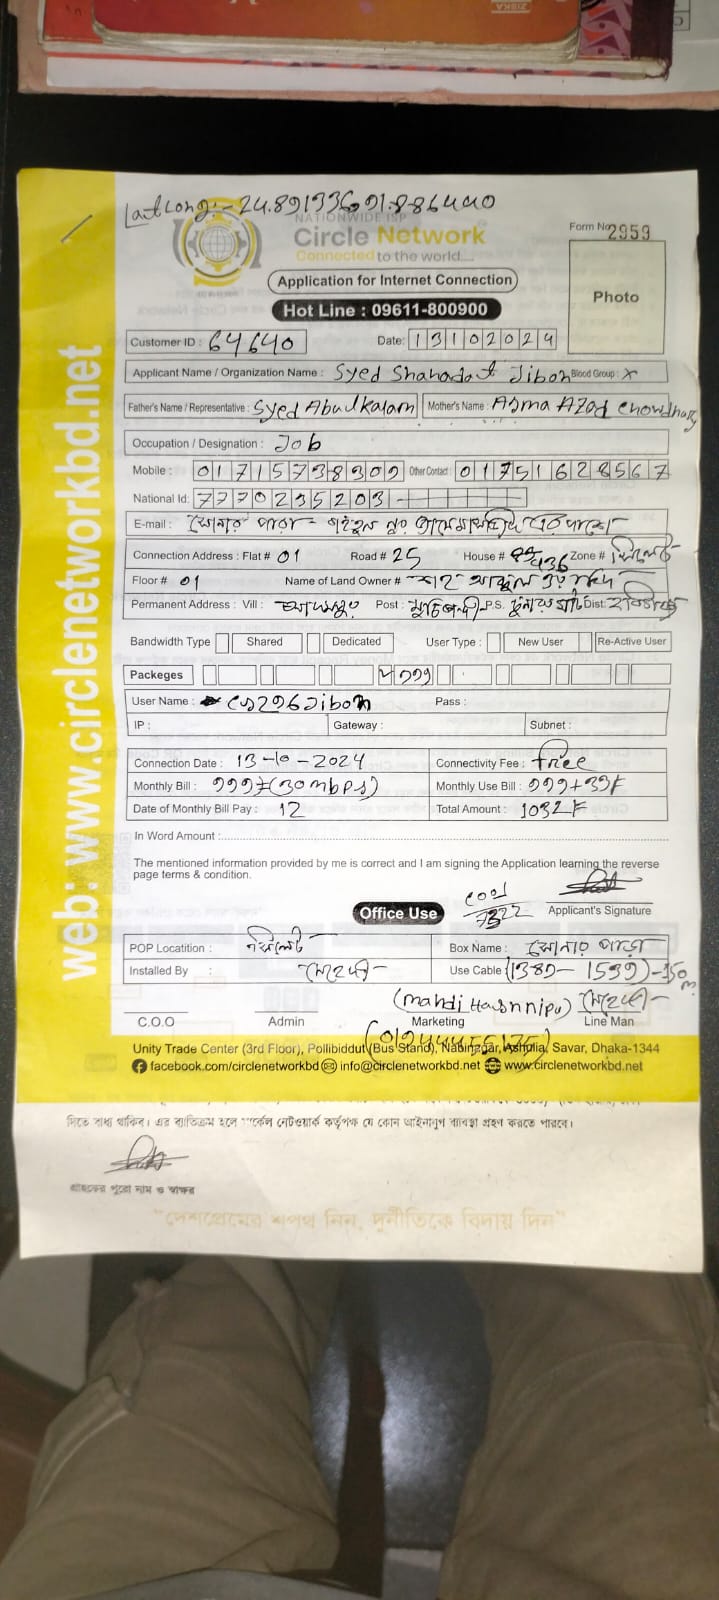 Lat Long:- 24.891336, 91.886440
NATIONWIDE ISP
Circle Network
Connected to the world....
Form No 2959
Application for Internet Connection
Photo
Hot Line : 09611-800900
Customer ID : 64640 Date: 13102024
Applicant Name / Organization Name : Syed Shahadat Jibon Blood Group : x
Father's Name / Representative : Syed Abulkalam Mother's Name : Asma Azad Chowdhury
Occupation / Designation : Job
Mobile : 01715738309 Other Contact : 01751628567
National Id: 7770235203
E-mail : সোনার পারা-
Connection Address : Flat # 01 Road # 25 House # 436 Zone # সিলেট
Floor # 01 Name of Land Owner #
Permanent Address : Vill : Post : P.S. Dist:
Bandwidth Type Shared Dedicated User Type : New User Re-Active User
Packeges 999
User Name : cs296Jibon Pass :
IP : Gateway : Subnet :
Connection Date : 13-10-2024 Connectivity Fee : free
Monthly Bill : 999 (30mbps) Monthly Use Bill : 999+33
Date of Monthly Bill Pay : 12 Total Amount : 1032
In Word Amount :
The mentioned information provided by me is correct and I am signing the Application learning the reverse
page terms & condition.
Office Use Applicant's Signature
POP Locatition : সিলেট Box Name : সোনার পাড়া
Installed By : মেহেদী- Use Cable (1389- 1539)-150m
(mahdi Hasan nipu) মেহেদী-
C.O.O Admin Marketing Line Man
Unity Trade Center (3rd Floor), Pollibiddut (Bus Stand), Nabinagar, Ashulia, Savar, Dhaka-1344
facebook.com/circlenetworkbd info@circlenetworkbd.net www.circlenetworkbd.net
web: www.circlenetworkbd.net
দিতে বাধ্য থাকিব। এর ব্যতিক্রম হলে সার্কেল নেটওয়ার্ক কর্তৃপক্ষ যে কোন আইনানুগ ব্যবস্থা গ্রহণ করতে পারবে।
গ্রাহকের পুরো নাম ও স্বাক্ষর
"দেশপ্রেমের শপথ নিন, দুর্নীতিকে বিদায় দিন"